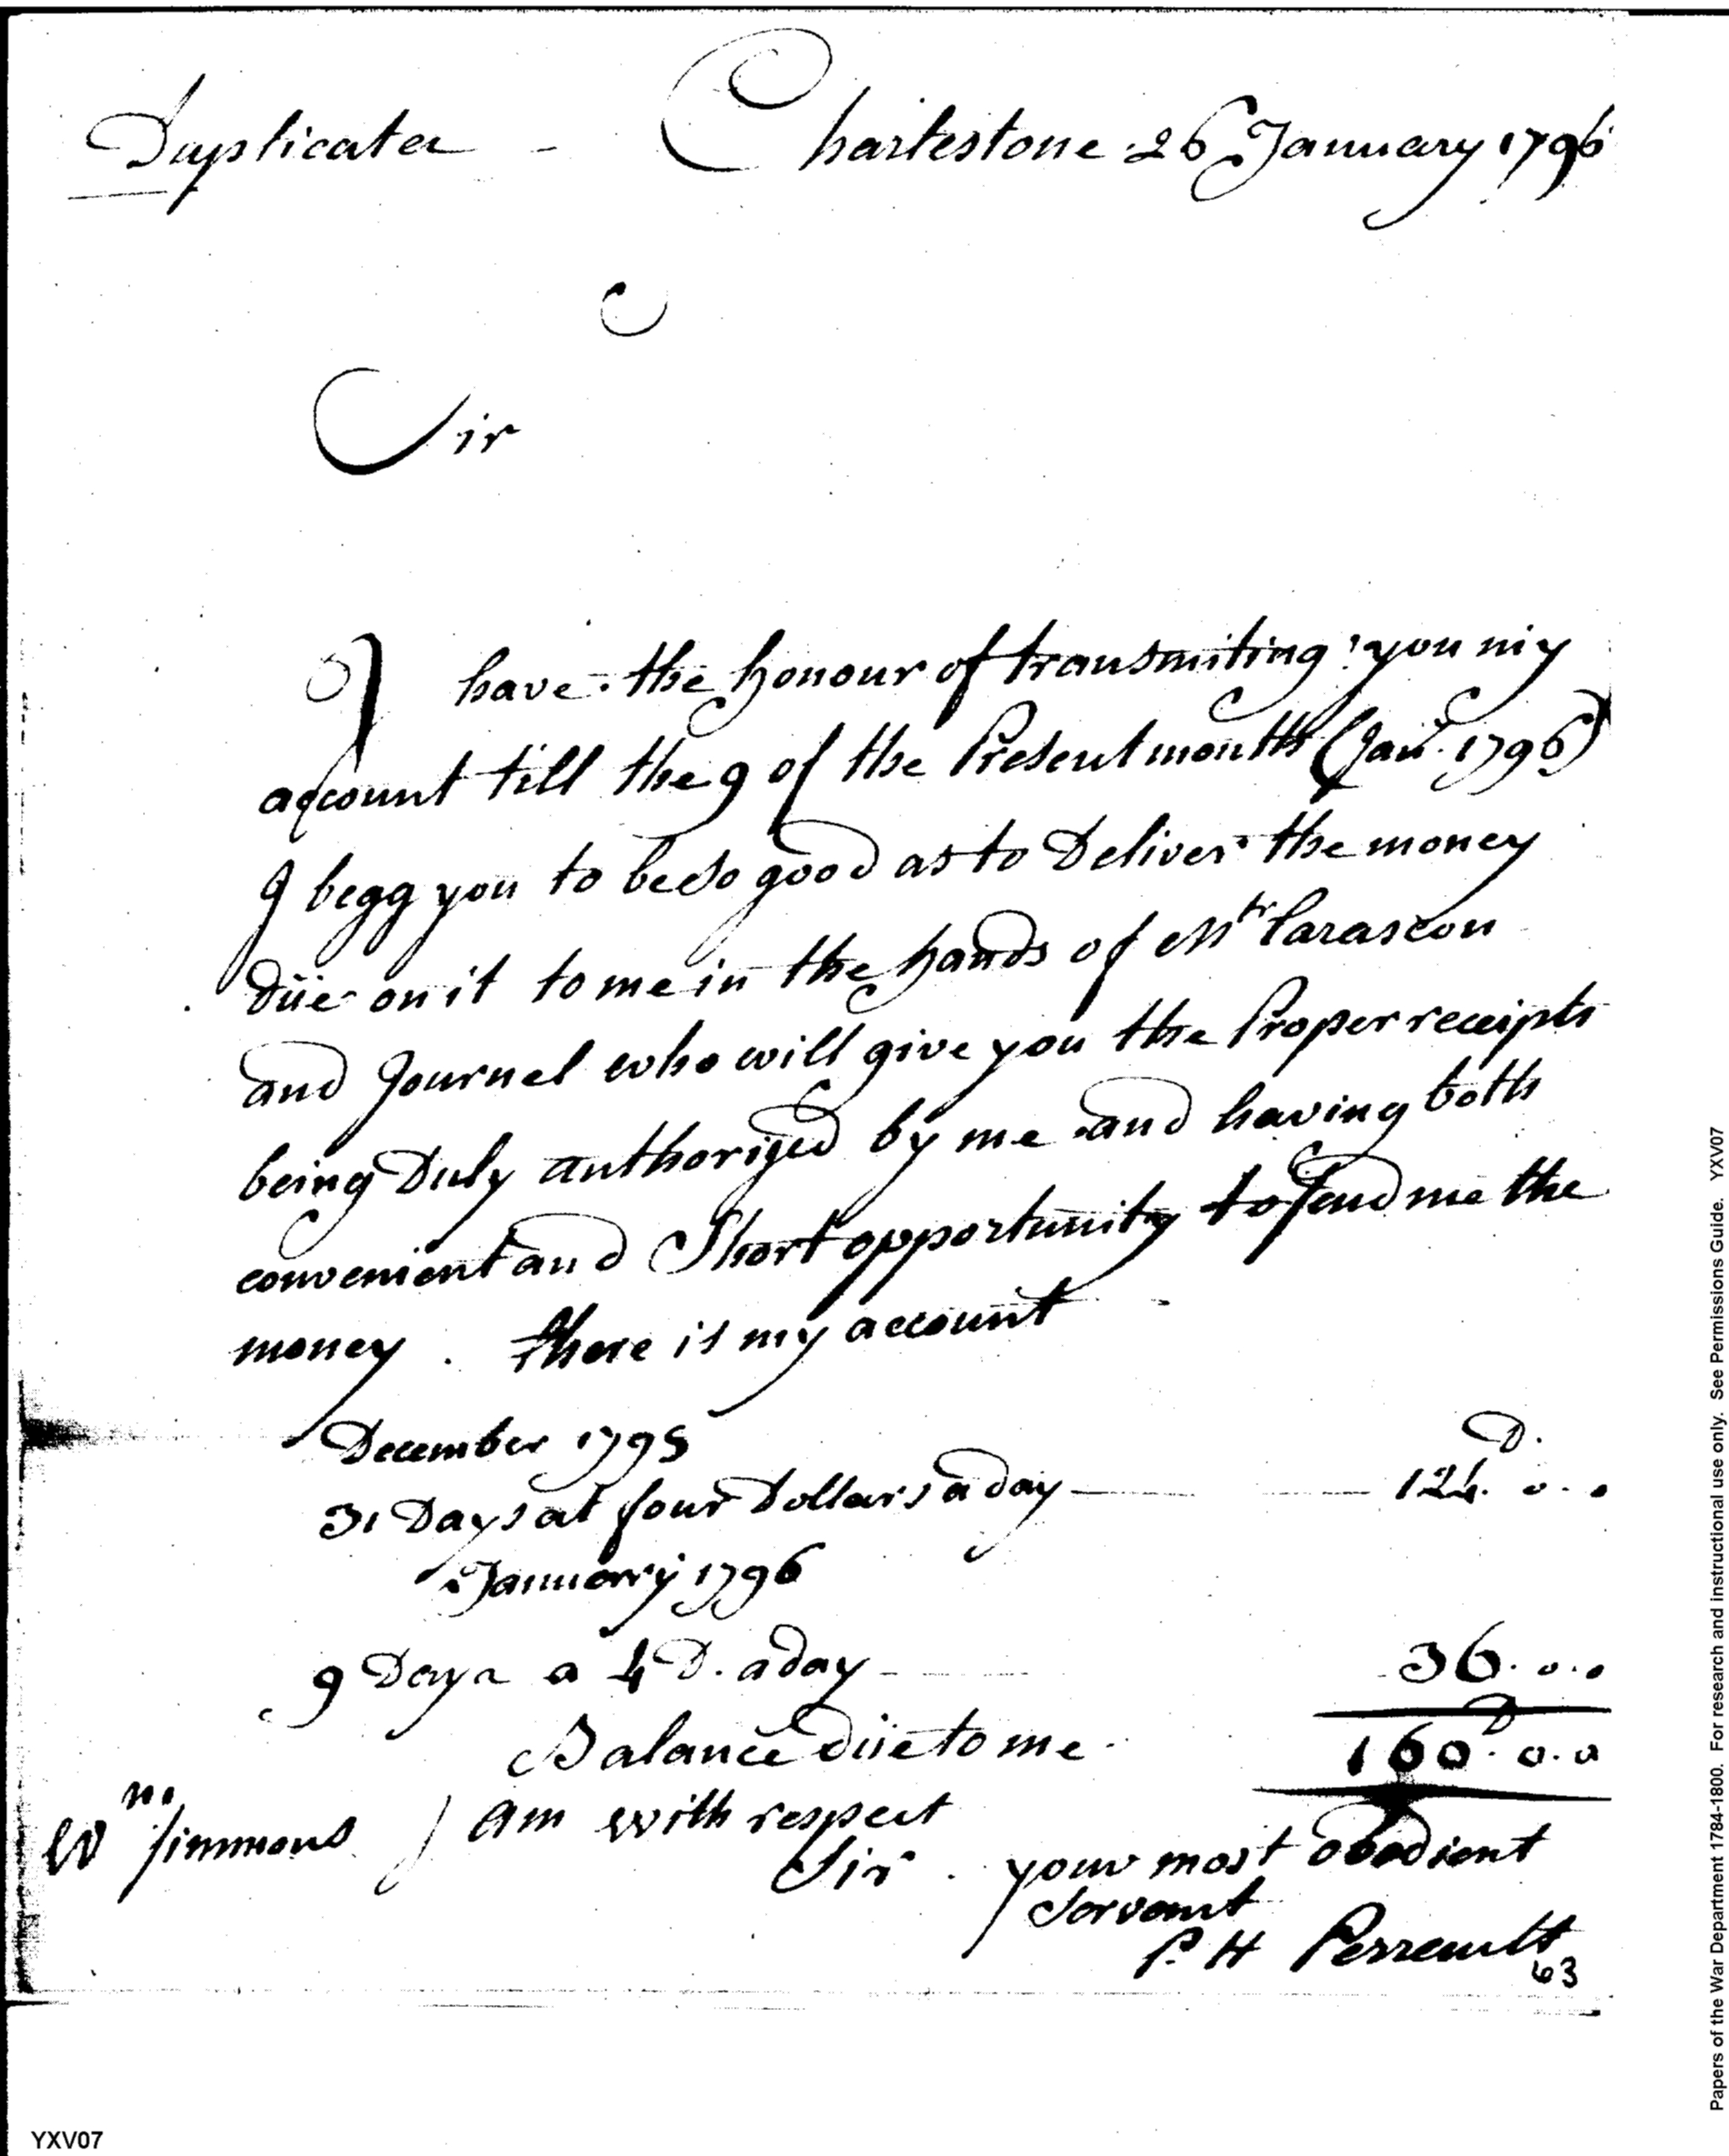 Duplicata - Charlestone 26 January 1796
Sir
I have the honour of transmiting you my
account till the 9 of the Present month (Janr. 1796)
I begg you to be so good as to Deliver the money
düe on it to me in the hands of Mr
and Journel who will give you the Proper receipts
being Duly authorized by me and having both
convenient and Short opportunity to send me the
money . there is my account
December 1795 D.
31 Days at four Dollars a day — 124. 0. 0
January 1796
9 Days a 4 D. a day - 36. 0. 0
Balance düe to me 160D. 0. 0
Wm. Simmons I am with respect
Sir . your most obedient
Servant
P. H Perrault
63
YXV07
Papers of the War Department 1784-1800. For research and instructional use only. See Permissions Guide. YXV07